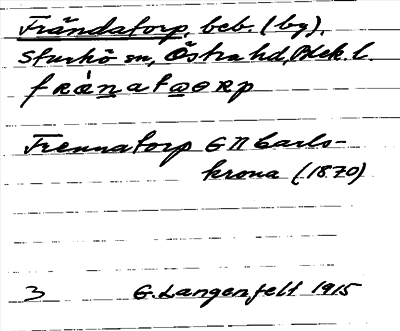 Frändatorp, beb. (by),
Sturkö sn, Östra hd, Blek. l.
Frennatorp G II Carls-
krona (1870)
3 G. Langenfelt 1915